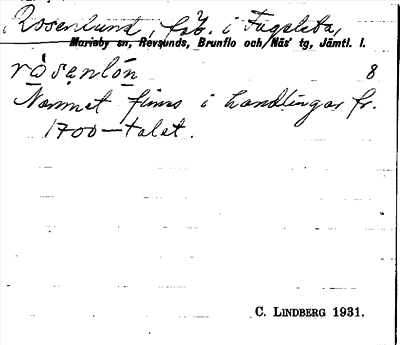 Rosenlund, fäb. i Fugelsta,
Marieby sn, Revsunds, Brunflo och Näs' tg, Jämtl. l.
rò̱sẹnlón̲ 8
Namnet finns i handlingar fr.
1700-talet.
C. LINDBERG 1931.